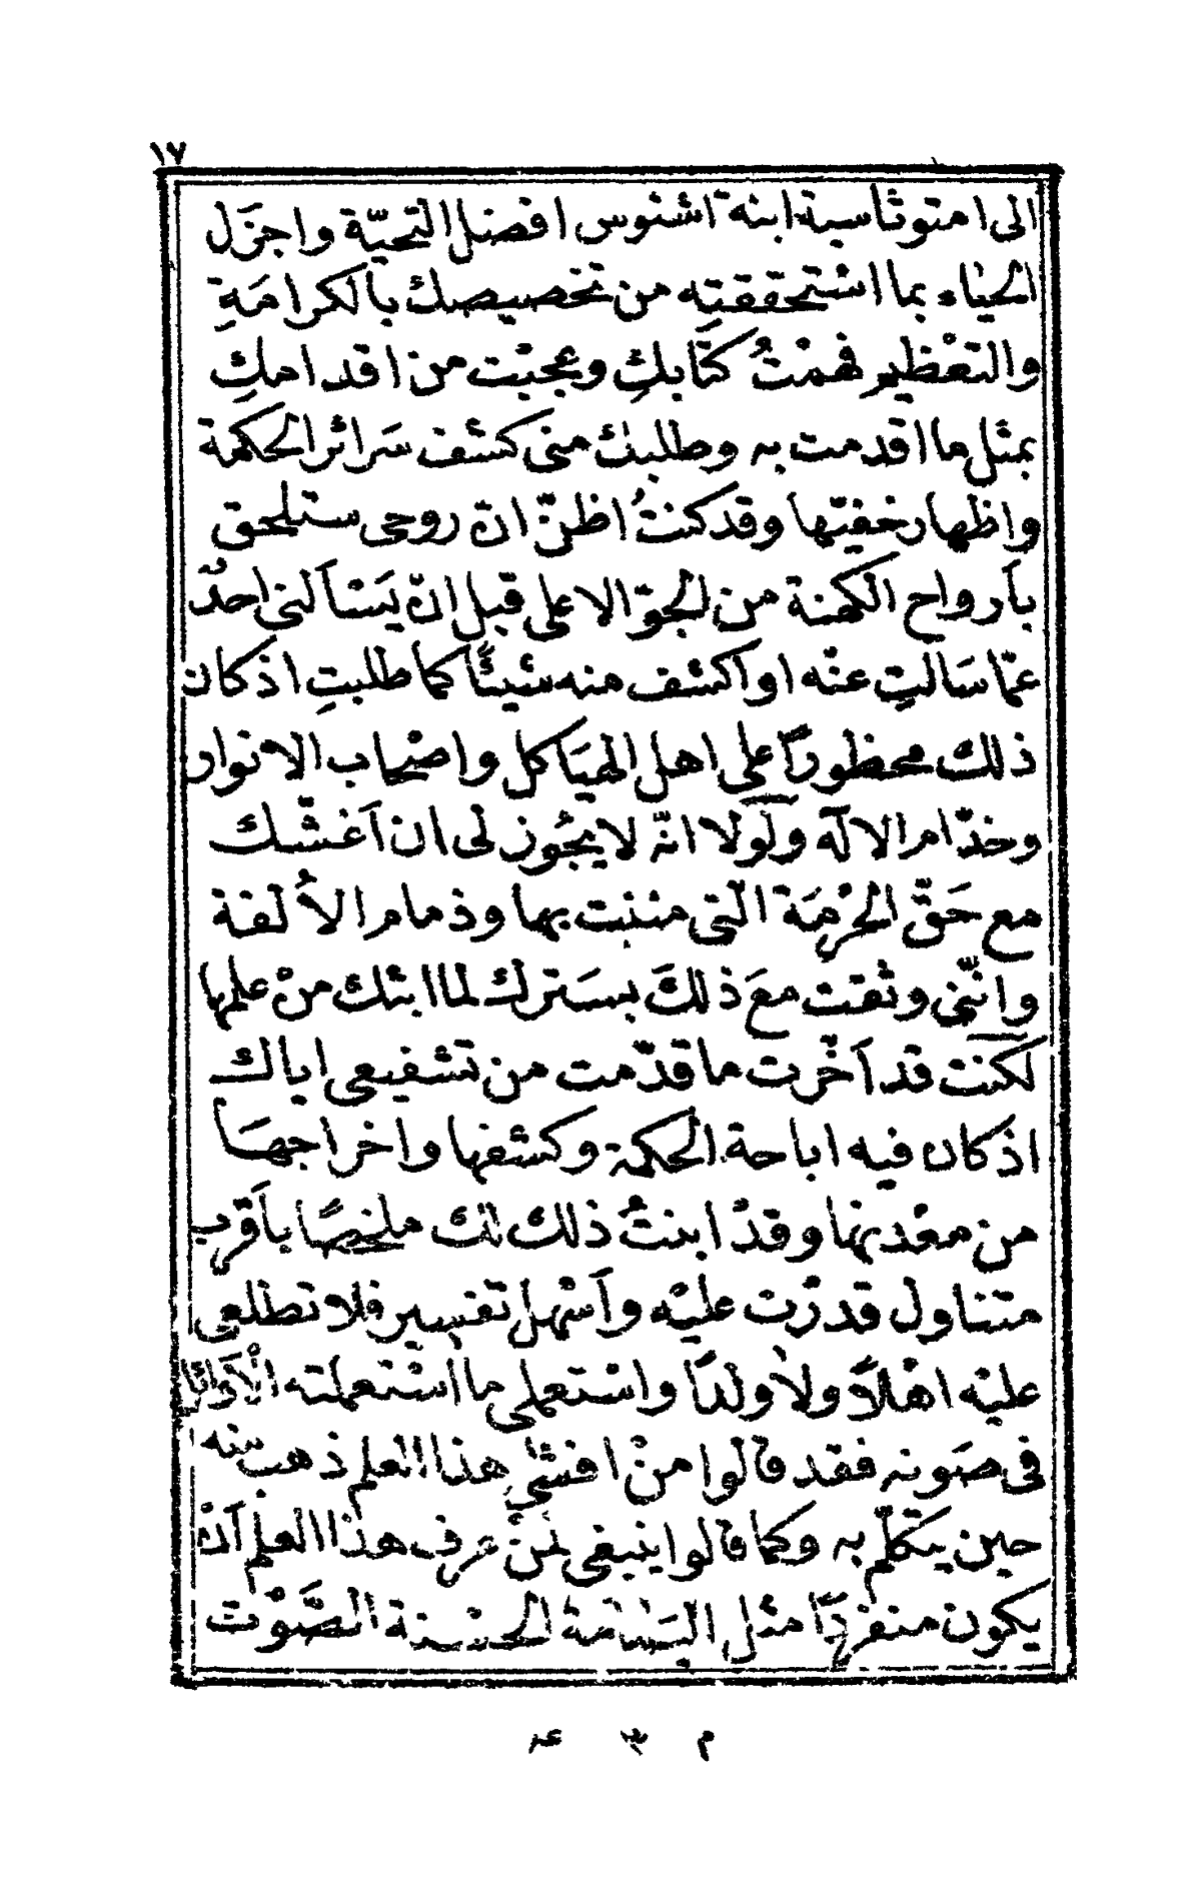 ١٧
الى امتوثاسية ابنة اشنوس افضل التحيّة واجزَل
الحياء بما استحققتِه من تخصيصك بالكرامَةِ
والتعْظيم فهمْتُ كتَابكِ وعجبْت من اقدامكِ
بمثل ما اقدمت به وطلبك منى كشف سَرائر الحكمة
واظهار خفيّها وقد كنتُ اظنّ انّ روحى ستلحق
بأرواح الكهنة من الجوّ الاعلى قبل انّ يَسْألنى احدٌ
عمّا سَالتِ عنْه او اكشف منه شيئًا كما طلبتِ اذ كان
ذلك محظورًا على اهل الهيَاكل واصْحاب الانوار
وخدّام الآلآه ولَولا انّه لا يجُوز لى ان اَغشّك
مع حَقّ الحُرْمَة الّتى متنت بها وذمام الأُلفة
وانّنى وثقت معَ ذلكَ بسَترك لما ابثك منْ علمها
لكنت قد اَخّرت ما قدّمت من تشفيعى اياك
اذ كان فيه اباحة الحكمة وكشفها واخراجهَا
من معْدنها وقدْ ابنتُ ذلك لك ملخصًا باَقرب
متناول قدرْت عليْه واَسْهل تفسير فلا تطلعى
عليْه اهْلاً ولا ولدًا واسْتعملى ما اسْتعملته الاَوائل
فى صَونه فقد قالوا منْ افشى هذا العلم ذهب منه
حين يتكلّم به وكما قالوا ينبغى لمنْ عرف هذا العلم اَنْ
يكون منفردًا مثل اليَمَامة الحسْنة الصَّوْت